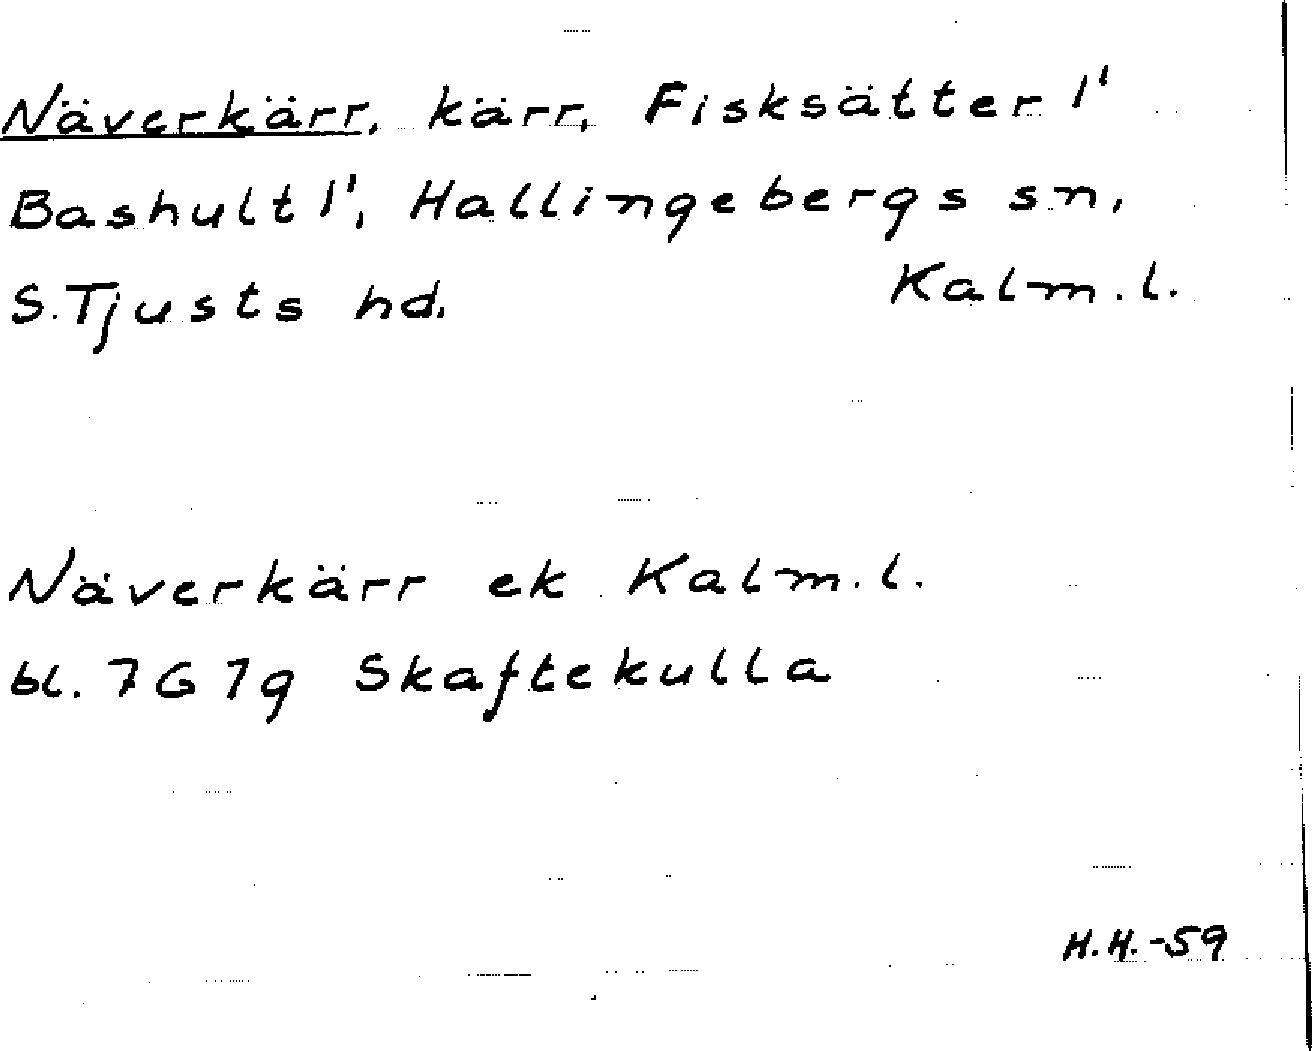 Näverkärr, kärr, Fisksätter 1¹
Bashult 1¹, Hallingebergs sn,
S. Tjusts hd. Kalm. l.
Näverkärr ek Kalm. l.
bl. 7G 7g Skaftekulla
H.H.-59